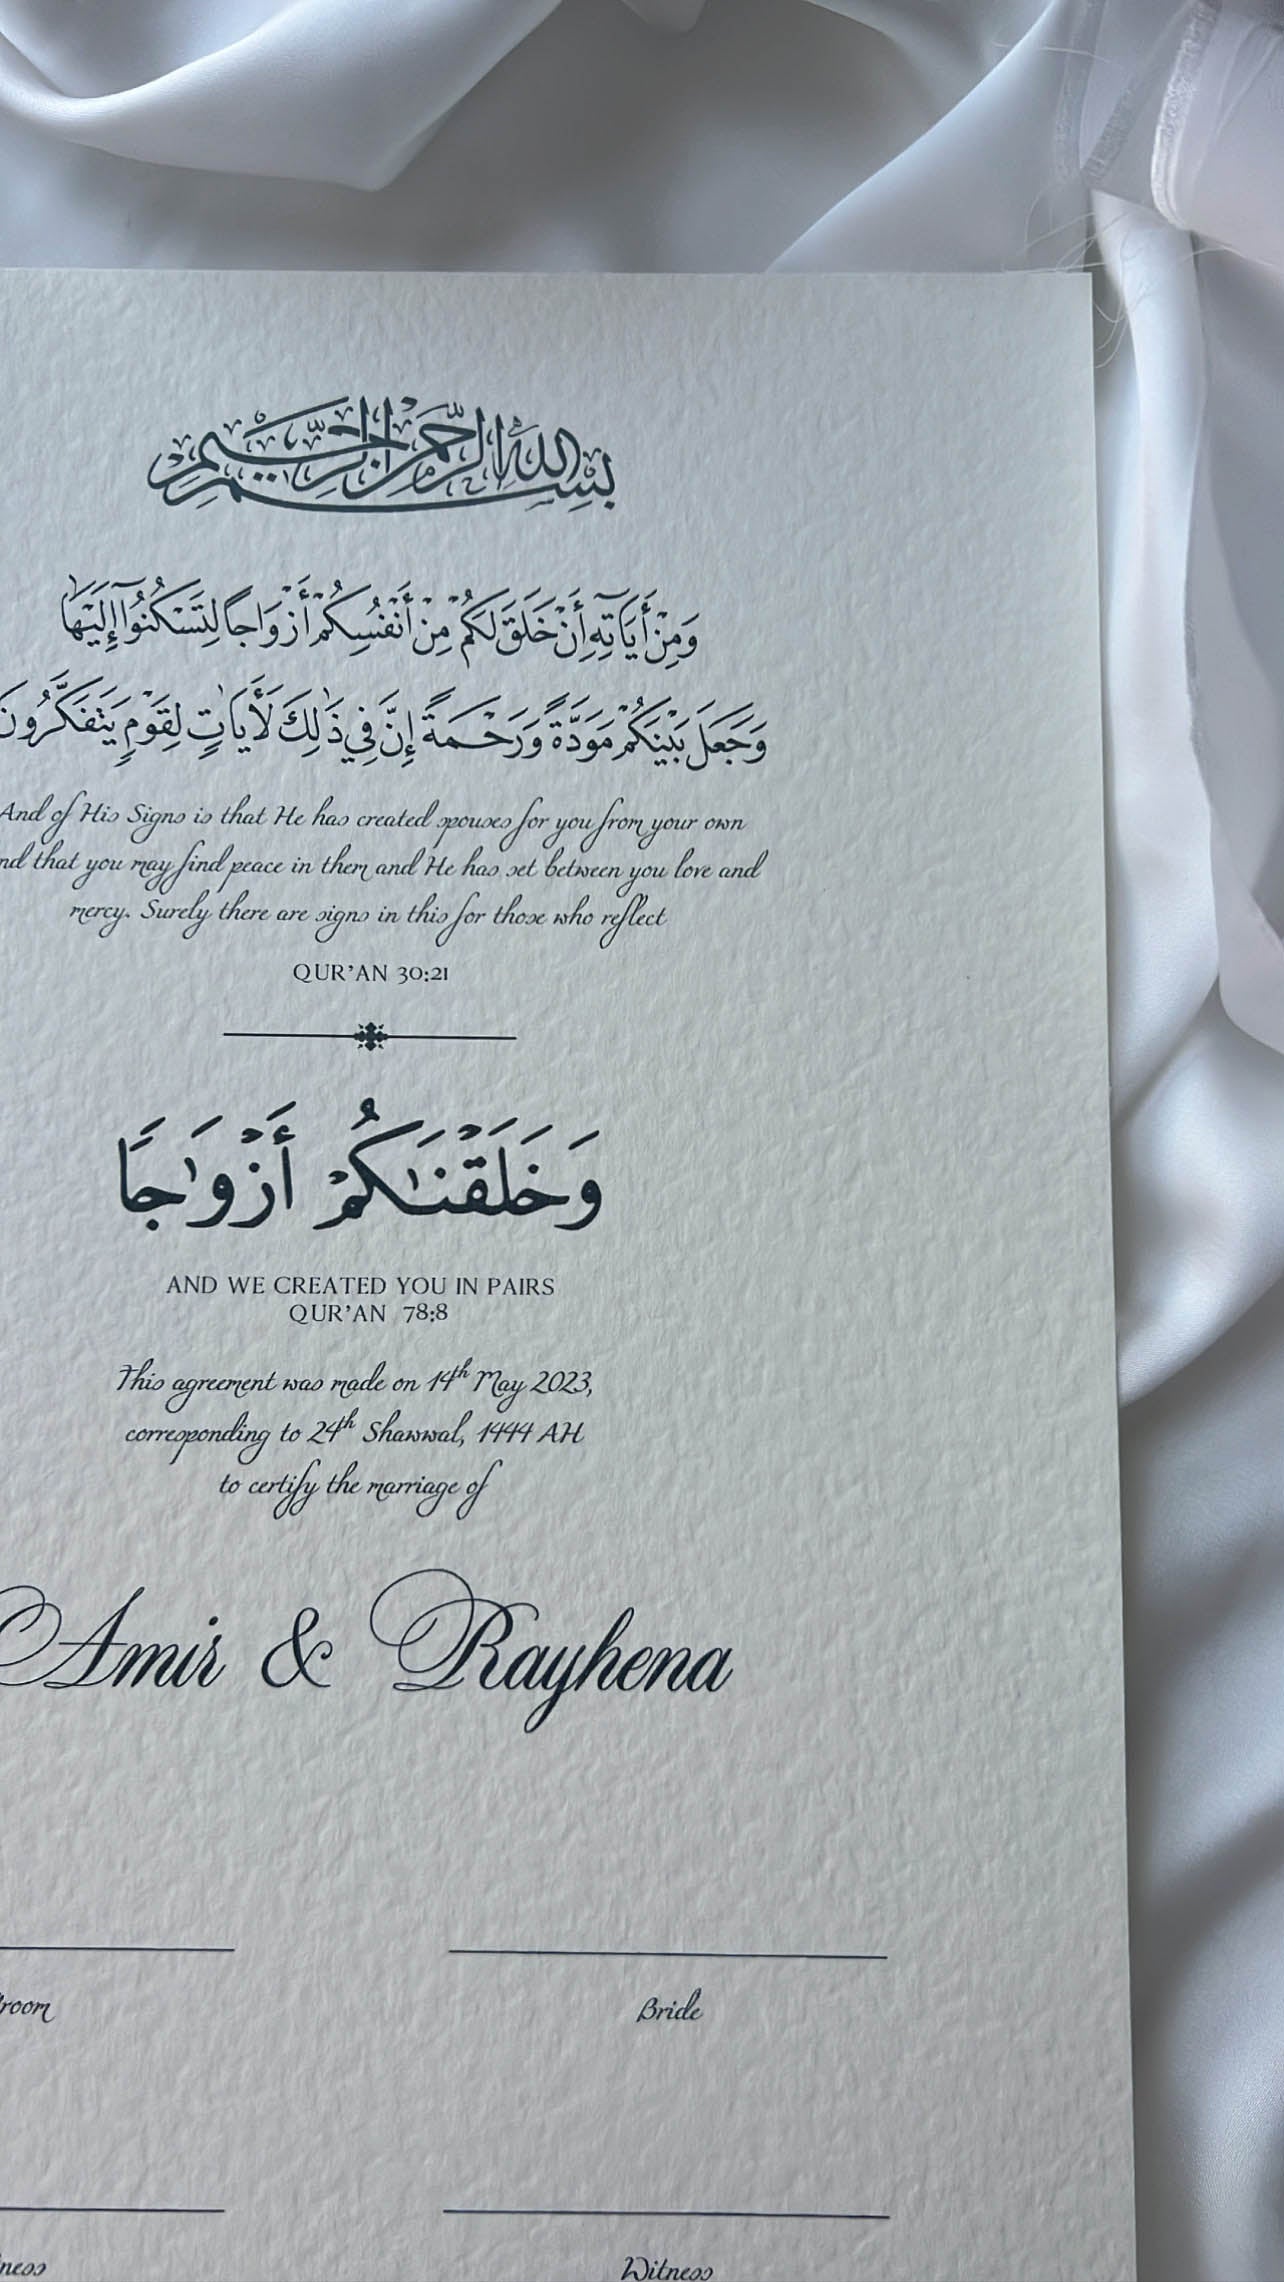 بِسْمِ اللَّهِ الرَّحْمَٰنِ الرَّحِيمِ
وَمِنْ أَيَاتِهِ أَنْ خَلَقَ لَكُمْ مِنْ أَنْفُسِكُمْ أَزْوَاجًا لِتَسْكُنُوا إِلَيْهَا
وَجَعَلَ بَيْنَكُمْ مَوَدَّةً وَرَحْمَةً إِنَّ فِي ذَٰلِكَ لَأَيَاتٍ لِقَوْمٍ يَتَفَكَّرُونَ
And of His Signs is that He has created spouses for you from your own
nd that you may find peace in them and He has set between you love and
mercy. Surely there are signs in this for those who reflect
QUR'AN 30:21
وَخَلَقْنَٰكُمْ أَزْوَٰجًا
AND WE CREATED YOU IN PAIRS
QUR'AN 78:8
This agreement was made on 14th May 2023,
corresponding to 24th Shawwal, 1444 AH
to certify the marriage of
Amir & Rayhena
room Bride
ness Witness